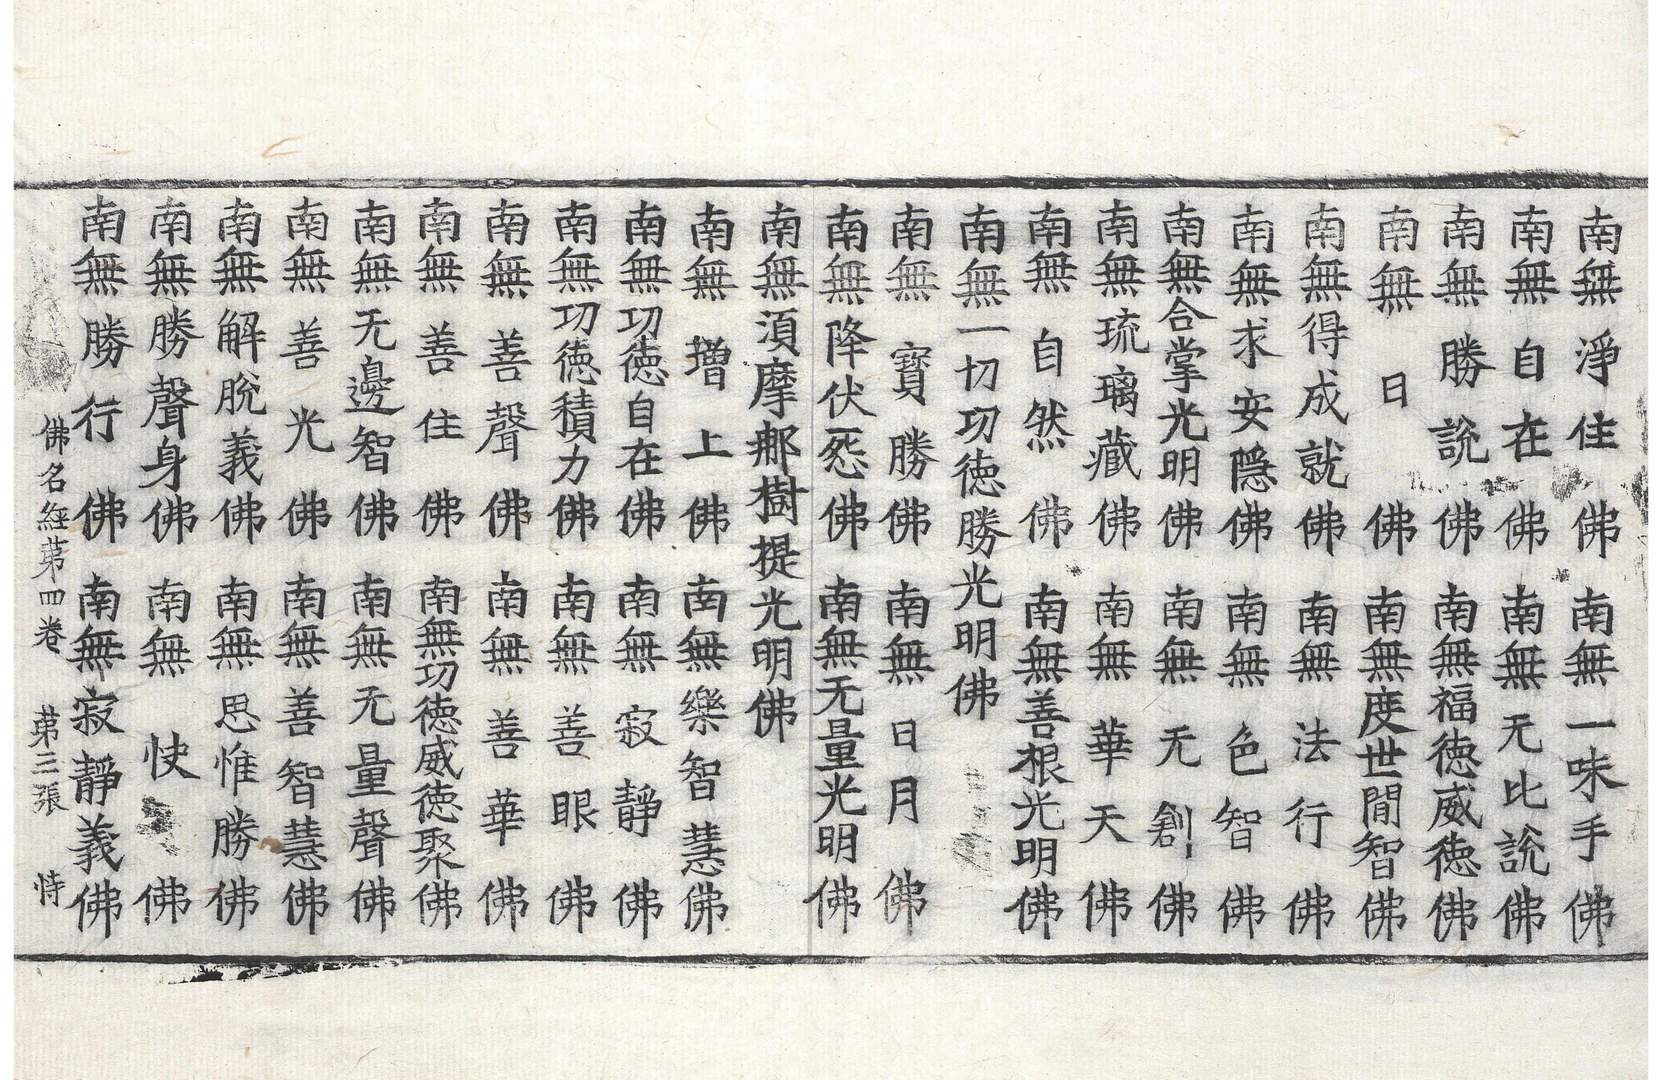 南無淨住佛南無一味手佛
南無自在佛南無无比說佛
南無勝說佛南無福德威德佛
南無日佛南無度世間智佛
南無得成就佛南無法行佛
南無求安隱佛南無色智佛
南無合掌光明佛南無无創佛
南無琉璃藏佛南無華天佛
南無自然佛南無善根光明佛
南無一切功德勝光明佛
南無寶勝佛南無日月佛
南無降伏怨佛南無无量光明佛
南無須摩那樹提光明佛
南無增上佛南無樂智慧佛
南無功德自在佛南無寂靜佛
南無功德積力佛南無善眼佛
南無善聲佛南無善華佛
南無善住佛南無功德威德聚佛
南無无邊智佛南無无量聲佛
南無善光佛南無善智慧佛
南無解脫義佛南無思惟勝佛
南無勝聲身佛南無快佛
南無勝行佛南無寂靜義佛
佛名經苐四卷 苐三張 恃